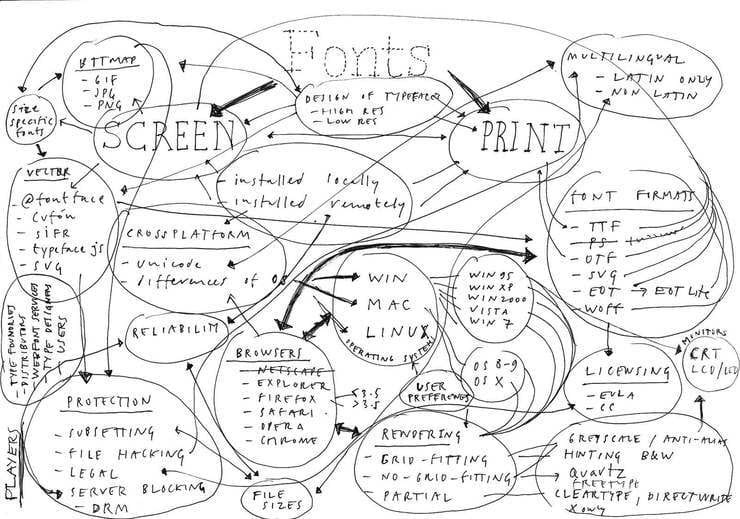 Fonts
BITMAP
- GIF
- JPG
- PNG
Size
specific
fonts
SCREEN
DESIGN OF TYPEFACES
- HIGH RES
- LOW RES
PRINT
MULTILINGUAL
- LATIN ONLY
- NON LATIN
VECTOR
- @fontface
- Cufón
- SIFR
- typeface js
- SVG
- installed locally
- installed remotely
CROSSPLATFORM
- Unicode
- differences of OS
WIN
MAC
LINUX
OPERATING SYSTEMS
WIN 95
WIN XP
WIN 2000
VISTA
WIN 7
OS 8-9
OS X
FONT FORMATS
- TTF
- PS
- OTF
- SVG
- EOT → EOT Lite
- WOFF
TYPE FOUNDRIES
- DISTRIBUTORS
- WEBFONT SERVICES
- TYPE DESIGNERS
- USERS
PLAYERS
RELIABILITY
BROWSERS
- NETSCAPE
- EXPLORER
- FIREFOX
<3.5
>3.5
- SAFARI
- OPERA
- CHROME
USER
PREFERENCES
LICENSING
- EULA
- CC
MONITORS
CRT
LCD/LED
PROTECTION
- SUBSETTING
- FILE HACKING
- LEGAL
- SERVER BLOCKING
- DRM
FILE
SIZES
RENDERING
- GRID-FITTING
- NO-GRID-FITTING
- PARTIAL
GREYSCALE / ANTI-ALIAS
HINTING B&W
Quartz
FREETYPE
CLEARTYPE, DIRECTWRITE
X only